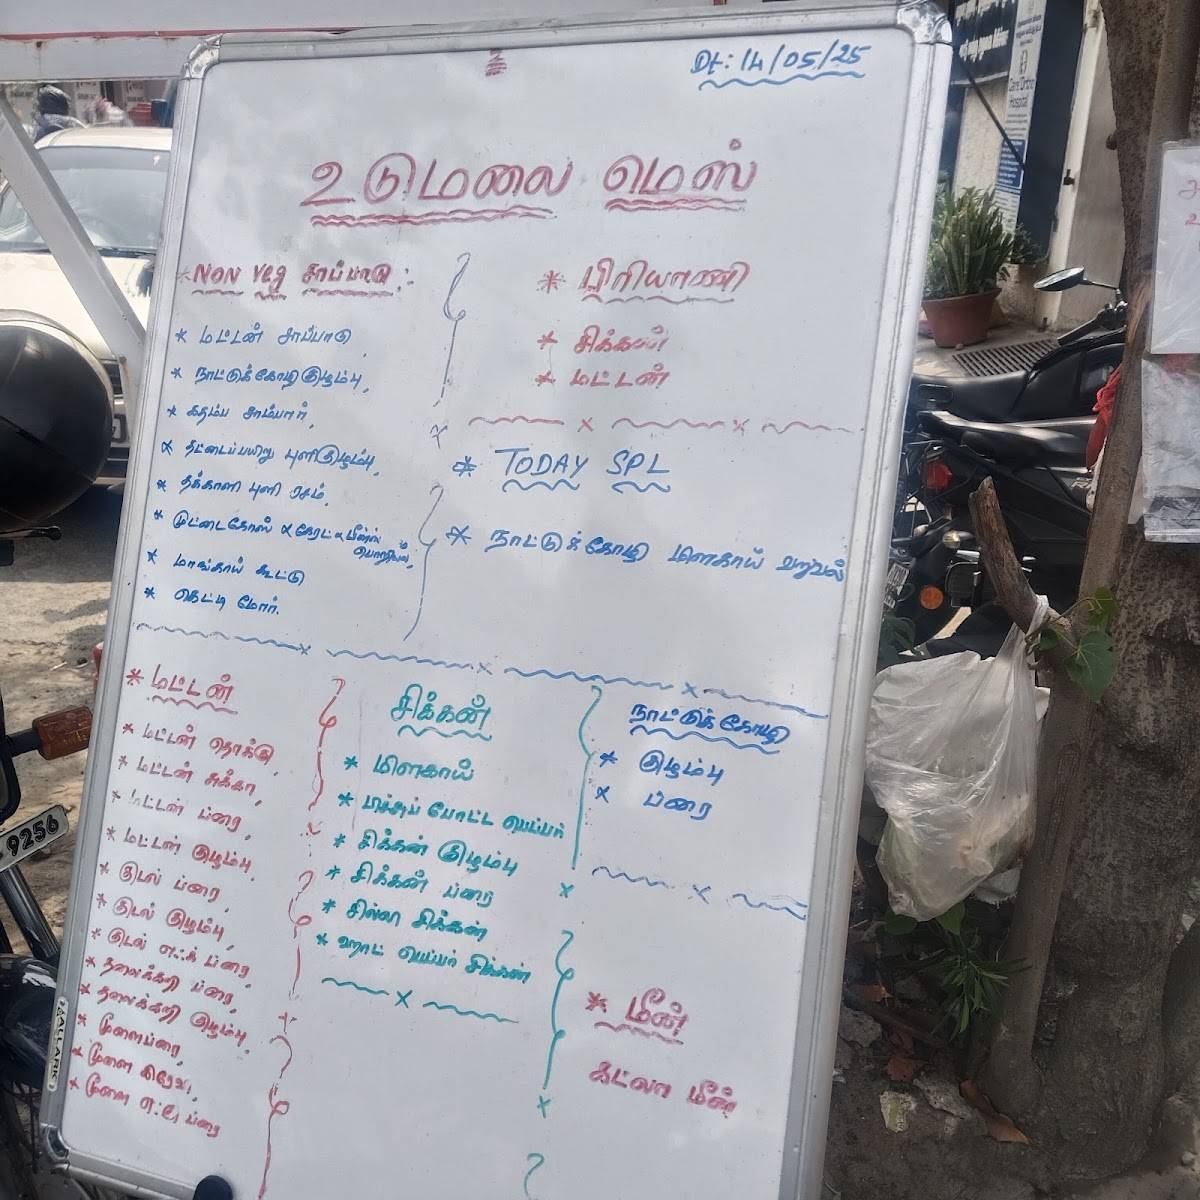 Dt: 14/05/25
உடுமலை மெஸ்
* NON Veg சாப்பாடு :-
* மட்டன் சாப்பாடு
* நாட்டுக்கோழி குழம்பு,
* கதம்ப சாம்பார்,
* தட்டைப்பயிறு புளிகுழம்பு,
* தக்காளி புளி ரசம்,
* முட்டைகோஸ் & கேரட் & பீன்ஸ் பொரியல்,
* மாங்காய் கூட்டு
* கெட்டி மோர்.
* பிரியாணி
* சிக்கன்
* மட்டன்
* TODAY SPL
* நாட்டுக்கோழி மிளகாய் வறுவல்
* மட்டன்
* மட்டன் தொக்கு,
* மட்டன் சுக்கா,
* மட்டன் ப்ரை,
* மட்டன் குழம்பு,
* குடல் ப்ரை,
* குடல் குழம்பு,
* குடல் எக் ப்ரை,
* தலைக்கறி ப்ரை,
* தலைக்கறி குழம்பு,
* மூளை ப்ரை,
* மூளை கிரேவி,
* மூளை ப்ரை
சிக்கன்
* மிளகாய்
* பிச்சுப் போட்ட பெப்பர்
* சிக்கன் குழம்பு
* சிக்கன் ப்ரை
* சில்லி சிக்கன்
* ஹாட் பெப்பர் சிக்கன்
நாட்டுக்கோழி
* குழம்பு
* ப்ரை
* மீன்
கட்லா மீன்
9256
ALLARK
Hospital